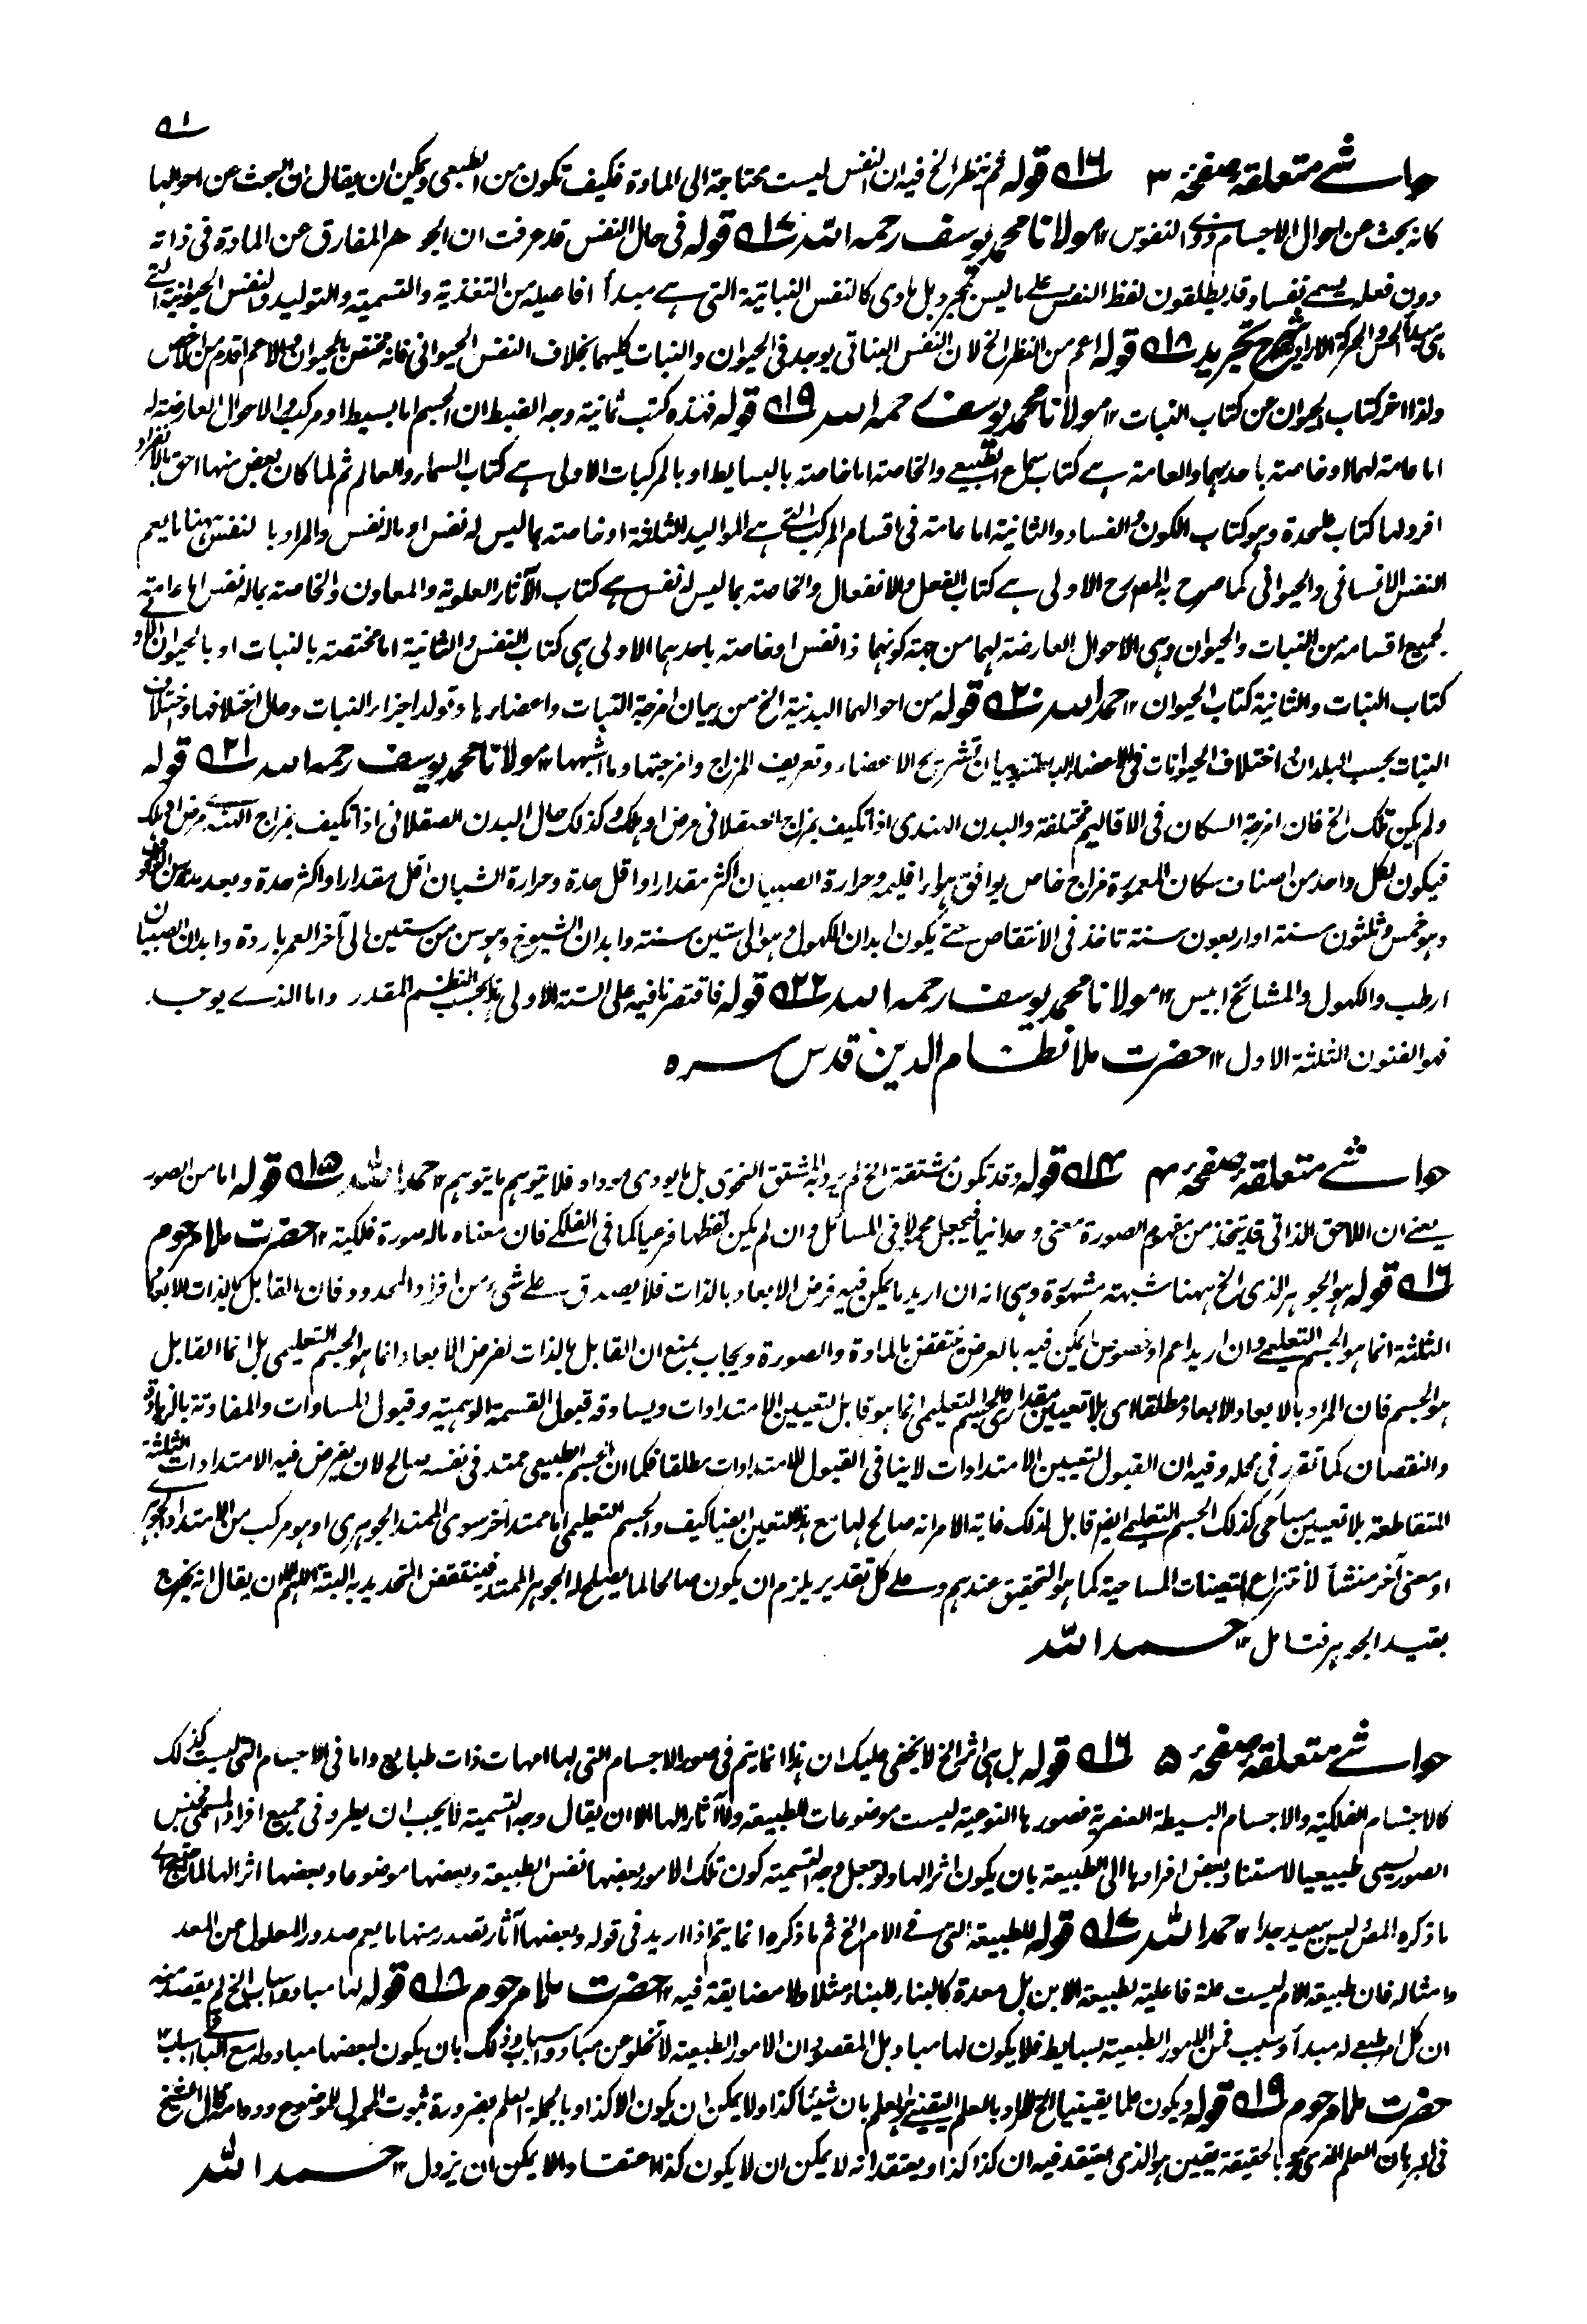 ٥١
حواشے متعلقہ صفحہ ٣ ١٦؎ قوله ثم ننظر الخ فيه ان النفس ليست محتاجة الى المادة فكيف تكون من الطبيعى ويمكن ان يقال ان البحث عن احوالها
كانه بحث عن احوال الاجسام ذوى النفوس ١٢ مولانا محمد يوسف رحمه الله ١٧؎ قوله فى حال النفس قد عرفت ان الجوهر المفارق عن المادة فى ذاته
دون فعله يسمى نفسا وقد يطلقون لفظ النفس على ما ليس بمجرد بل مادى كالنفس النباتية التى هے مبدأ افاعيله من التغذية والتنمية والتوليد والنفس الحيوانية التے
هى مبدأ الحس والحركة الارادية شرح تجريد ١٨؎ قوله اعم من النظر الخ لان النفس النباتى يوجد فى الحيوان والنبات كليهما بخلاف النفس الحيوانى فانه مختص بالحيوان والاعم اقدم من الاخص
ولذا اخر كتاب الحيوان عن كتاب النبات ١٢ مولانا محمد يوسف رحمه الله ١٩؎ قوله فهذه كتب ثمانية وجه الضبط ان الجسم اما بسيط او مركب والاحوال العارضة له
اما عامة لهما او خاصة باحديهما والعامة هے كتاب سماع الطبيعے والخاصة اما خاصة بالبسايط او بالمركبات الاولى هے كتاب السماء والعالم ثم لما كان بعض منها احق بالافراد
افرد لها كتاب علحدة وهو كتاب الكون والفساد والثانية اما عامة فى اقسام المركب التے هے المواليد الثلثة او خاصة بما ليس له نفس او ماله نفس والمراد بالنفس ههنا ما يعم
النفس الانسانى والحيوانى كما صرح به المصرح الاولى هے كتاب الفعل والانفعال والخاصة بما ليس له نفس هے كتاب الآثار العلوية والمعادن والخاصة بماله نفس اما عامة
لجميع اقسامه من النبات والحيوان وهى الاحوال العارضة لهما من جهة كونهما ذا نفس او خاصة باحدهما الاولى هى كتاب النفس والثانية اما مختصة بالنبات او بالحيوان الاولے
كتاب النبات والثانية كتاب الحيوان ١٢ حمد الله ٢٠؎ قوله من احوالهما البدنية الخ من بيان امزجة النبات واعضارها وتولد اجزاء النبات وحال اختلافها واختلاف
النبات بحسب البلدان واختلاف الحيوانات فى الاعضاء الباطنة وبيان تشريح الاعضاء وتعريف المزاج وامزجتها وما اشبهها ١٢ مولانا محمد يوسف رحمه الله ٢١؎ قوله
ولم يكن تلك الخ فان امزجة السكان فى الاقاليم مختلفة والبدن الهندى اذا تكيف بمزاج الصقلانى مرض او هلك وكذلك حال البدن الصقلانى اذا تكيف بمزاج الهندے مرض او هلك
فيكون لكل واحد من اصناف سكان المعمورة مزاج خاص يوافق هواء اقليمه وحرارة الصبيان اكثر مقدارا واقل حدة وحرارة الشبان اقل مقدارا واكثر حدة وبعد مدة سن الوقوف
وهو خمس وثلثون سنة او اربعون سنة تاخذ فى الانتقاص حتے يكون ابدان الكهول وهو الى ستين سنة وابدان الشيوخ وهو سن من ستين الى آخر العمر باردة وابدان الصبيان
ارطب والكهول والمشائخ ايبس ١٢ مولانا محمد يوسف رحمه الله ٢٢؎ قوله فاقتصرنا فيه على الستة الاولى هذا بحسب النظم المقدر واما الذے يوجد
فهو الفنون الثلثة الاول ١٢ حضرت ملا نظام الدين قدس سره
حواشے متعلقہ صفحہ ٤ ١٤؎ قوله وقد تكون مشتقة الخ لم يرد به المشتق النحوى بل ما يودى موداه فلا يتوهم ما يتوهم ١٢ حمد الله ١٥؎ قوله اما من الصور
يعنے ان اللاحق الذاتى قد يتخذ من مفهوم الصورة معنى وحدانيا فيجعل محمولا فى المسائل وان لم يكن لفظها فرعيا كما فى الفلكے فان معناه ماله صورة فلكية ١٢ حضرت ملا مرحوم
١٦؎ قوله هو الجوهر الذى الخ ههنا شبهة مشهورة وهى انه ان اريد ما يمكن فيه فرض الابعاد بالذات فلا يصدق علے شىء من افراد المحدود فان القابل بالذات للابعاد
الثلثة انما هو الجسم التعليمے وان اريد اعم او خصوص ما يمكن فيه بالعرض ينتقض بالمادة والصورة ويجاب بمنع ان القابل بالذات لفرض الابعاد انما هو الجسم التعليمى بل انما القابل
هو الجسم فان المراد بالابعاد الابعاد مطلقا اى بلا تعيين مقدارى والجسم التعليمى انما هو قابل لتعيين الامتدادات ويساوقه قبول القسمة الوهمية وقبول المساوات والمفاوتة بالزيادة
والنقصان كما تقرر فى محله وفيه ان القبول لتعيين الامتدادات لا ينافى القبول للامتدادات مطلقا فكما ان الجسم الطبيعى ممتد فى نفسه صالح لان يفرض فيه الامتدادات الثلثة
المتقاطعة بلا تعيين مساحى كذلك الجسم التعليمے ايضا قابل لذلك غاية الامر انه صالح لها مع هذا التعين ايضا كيف والجسم التعليمى اما ممتد آخر سوى الممتد الجوهرى او هو مركب من الامتداد الجوهرے
او معنى آخر منشأ لانتزاع التعينات المساحية كما هو التحقيق عندهم وعلے كل تقدير يلزم ان يكون صالحا لما يصلح له الجوهر الممتد فينتقض التحديد به البتة اللهم الا ان يقال انه يخرج
بقيد الجوهر فتامل ١٢ حمد الله
حواشے متعلقہ صفحہ ٥ ١٦؎ قوله بل هى اثر الخ لا يخفى عليك ان هذا انما يتم فى صور الاجسام التى لها امهات ذات طبايع واما فى الاجسام التى ليست كذلك
كالاجسام الفلكية والاجسام البسيطة العنصرية فصورها النوعية ليست موضوعات للطبيعة ولا آثار الها الا ان يقال وجه التسمية لا يجب ان يطرد فى جميع افراد المسمى فجنس
الصور يسمى طبيعيا لاستناد بعض افرادها الى الطبيعة بان يكون اثرا لها ولو جعل وجه التسمية كون تلك الامور بعضها نفس الطبيعة وبعضها موضوعا وبعضها اثرا لها
ما ذكره المص ليس ببعيد جدا ١٢ حمد الله ١٧؎ قوله للطبيعة التى فى الام الخ ثم ما ذكره انما يتم اذا اريد فى قوله وبعضها آثار تصدر منها ما يعم صدور المعلول من المعد
وامثاله فان طبيعة الام ليست علة فاعلية لطبيعة الابن بل معدة كالبناء للبناء مثلا ولا مضايقة فيه ١٢ حضرت ملا مرحوم ١٨؎ قوله لها مباد واسباب الخ لم يقصد منه
ان كل طبيعے له مبدأ وسبب فمن الامور الطبعية بسايط فلا يكون لها مباد بل المقصود ان الامور الطبيعية لا تخلو عن مباد واسباب وذلك بان يكون لبعضها مباد
حضرت ملا مرحوم ١٩؎ قوله ويكون علما يقينيا الخ المراد بالعلم اليقينے العلم بان شيئا كذا ولا يمكن ان يكون الا كذا وبالجملة العلم بضرورة ثبوت المحمول للموضوع ودوامه قال الشيخ
فى البرهان العلم الذى هو بالحقيقة يقين هو الذى يعتقد فيه ان كذا كذا ويعتقد انه لا يمكن ان لا يكون كذا اعتقادا لا يمكن ان يزول ١٢ حمد الله